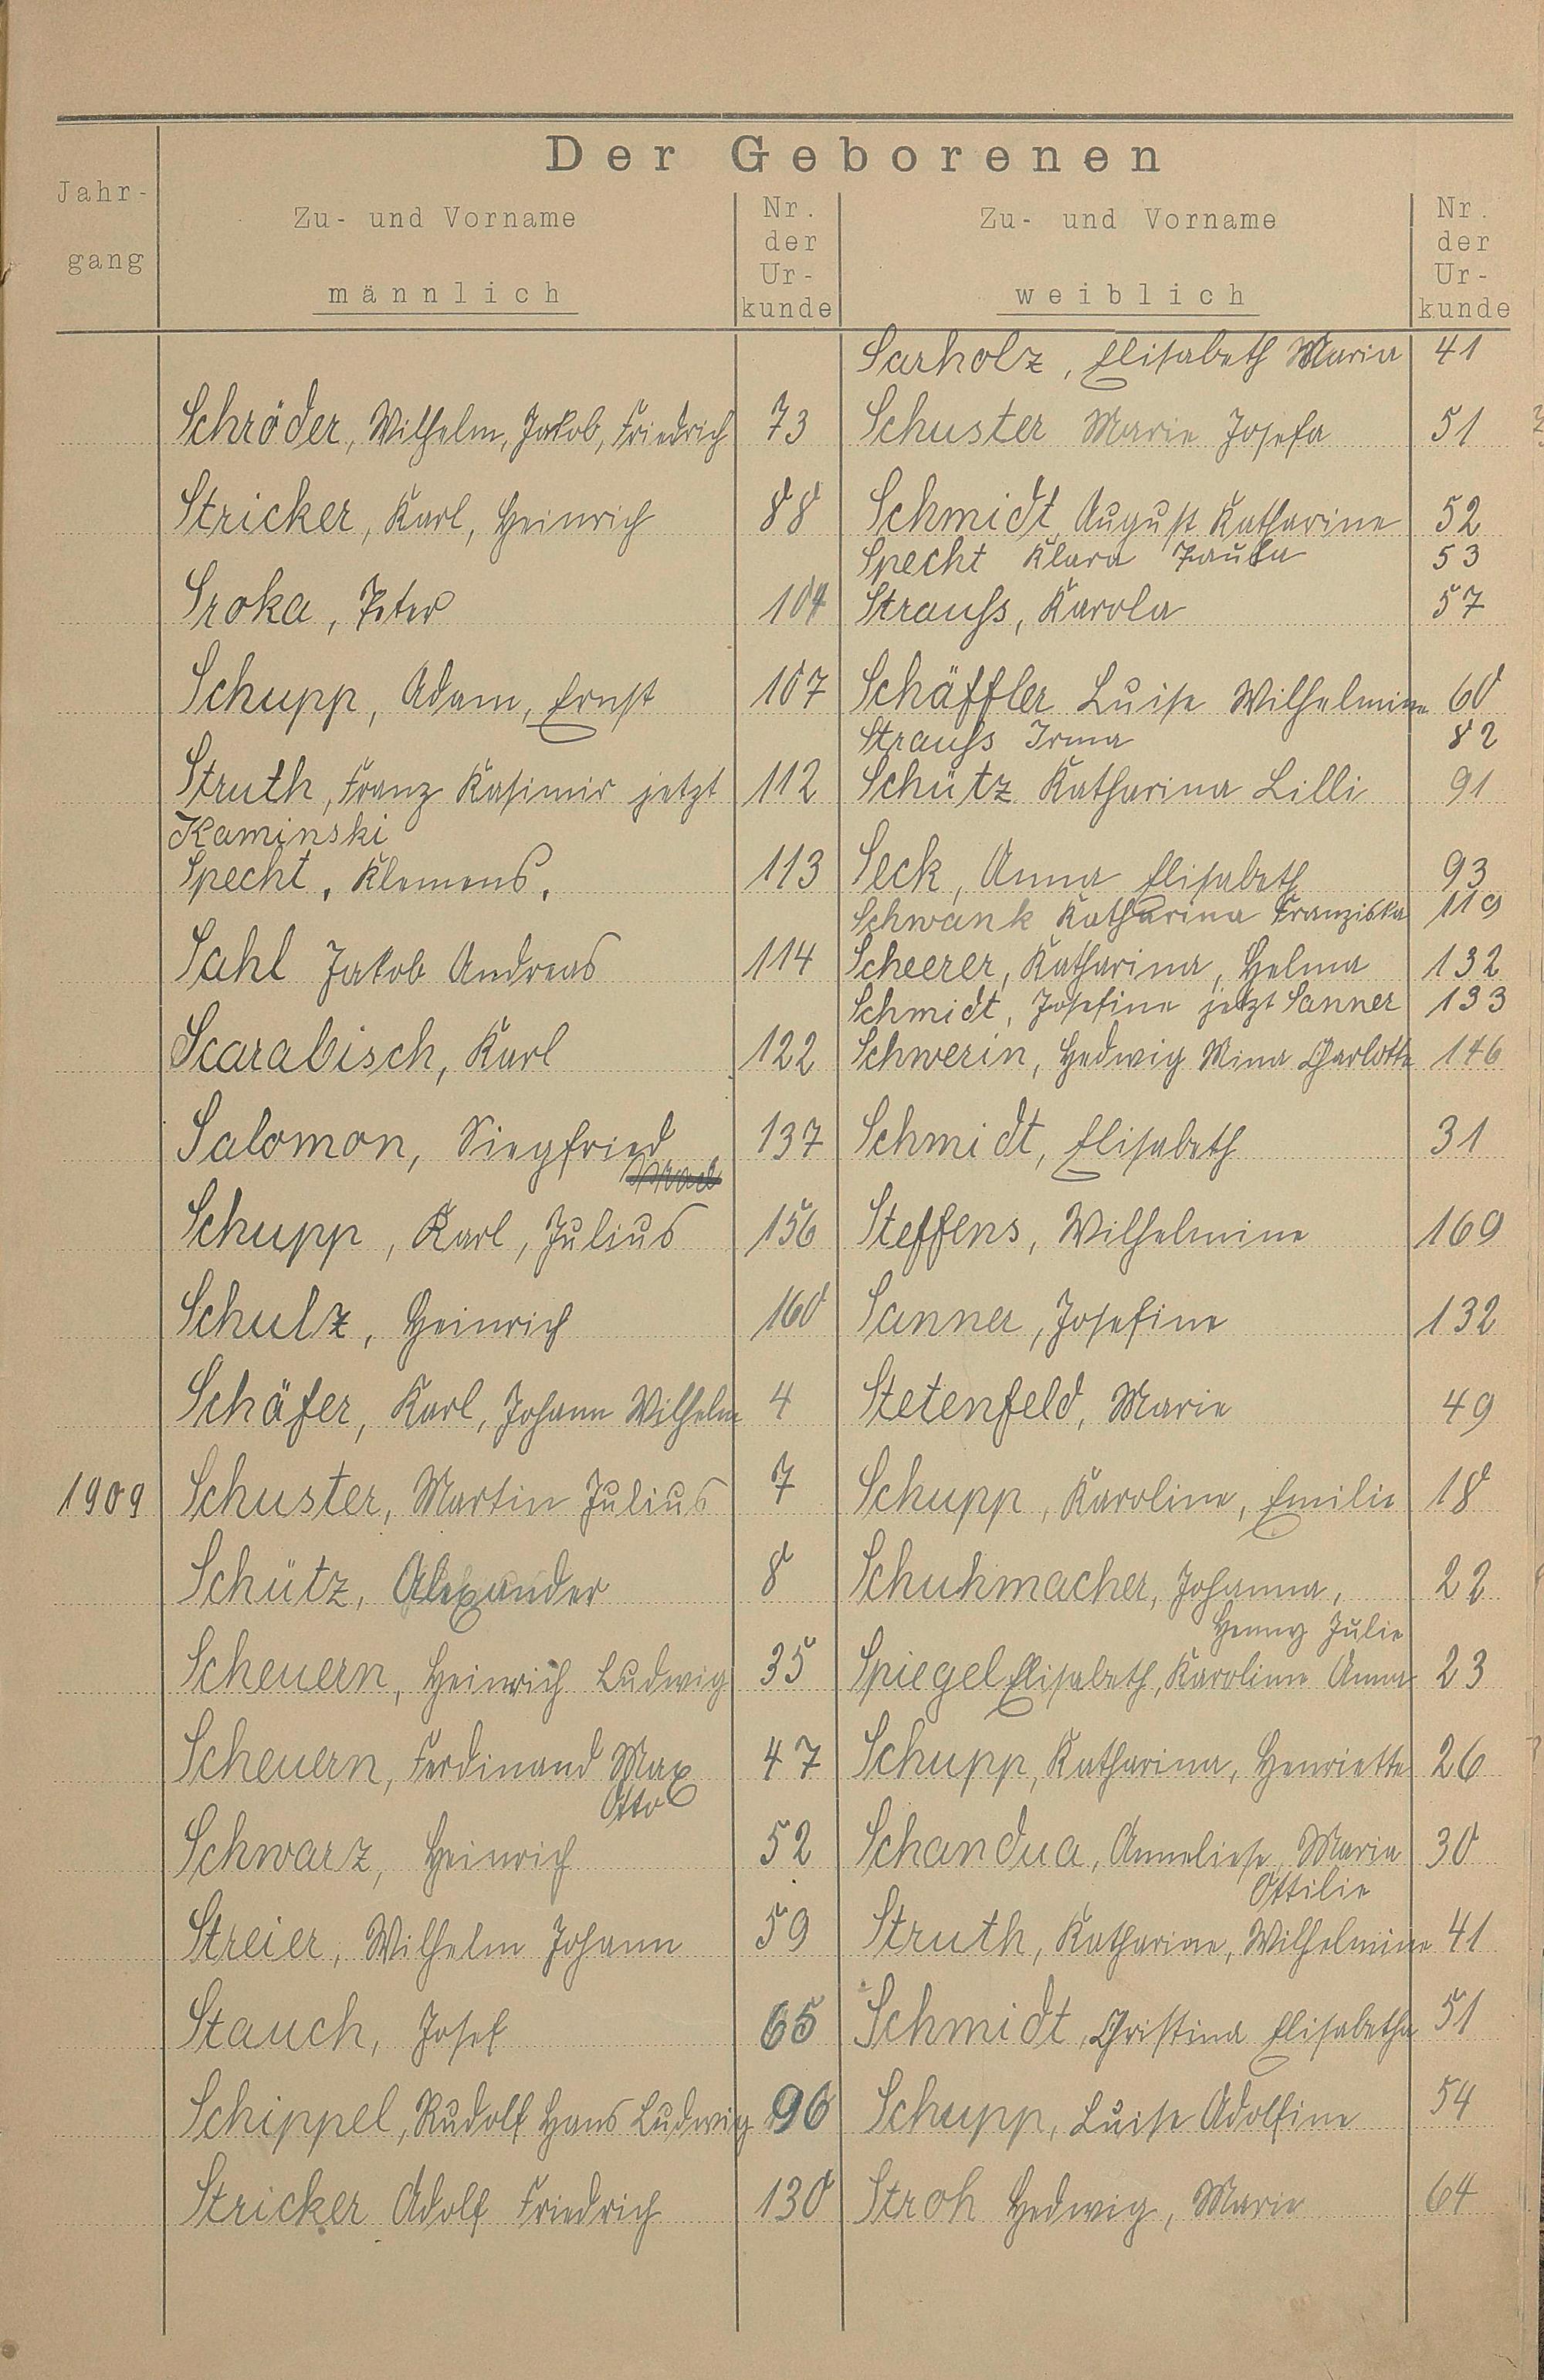 Der Geborenen
Jahr-
gang
Zu- und Vorname
männlich
Nr.
der
Ur-
kunde
Zu- und Vorname
weiblich
Nr.
der
Ur-
kunde
Sarholz, Elisabeth Maria 41
Schröder, Wilhelm, Jakob, Friedrich 73 Schuster Marie Josefa 51
Stricker, Karl, Heinrich 88 Schmidt August Katharine 52
Specht Klara Paula 53
Sroka, Peter 104 Strauß, Karola 57
Schupp, Adam, Ernst 107 Schäffler Luise Wilhelmine 60
Strauß Irma 82
Struth, Franz Kasimir jetzt 112 Schütz Katharina Lilli 91
Kaminski
Specht, Klemens. 113 Seck, Anna Elisabeth 93
Schwank Katharina Franziska 119
Sahl Jakob Andreas 114 Scheerer, Katharina, Helma 132
Schmidt, Josefine jetzt Sanner 133
Scarabisch, Karl 122 Schwerin, Hedwig Mina Charlotte 146
Salomon, Siegfried 137 Schmidt, Elisabeth 31
Israel
Schupp, Karl, Julius 156 Steffens, Wilhelmine 169
Schulz, Heinrich 160 Sanner, Josefine 132
Schäfer, Karl, Johann Wilhelm 4 Stetenfeld, Marie 49
1909 Schuster, Martin Julius 7 Schupp, Karoline, Emilie 18
Schütz, Alexander 8 Schuhmacher, Johanna, 22
Henny Julie
Scheuern, Heinrich Ludwig 35 Spiegel Elisabeth, Karoline Anna 23
Scheuern, Ferdinand Max 47 Schupp, Katharina, Henriette 26
Otto
Schwarz, Heinrich 52 Schandua, Anneliese, Maria 30
Ottilie
Streier, Wilhelm Johann 59 Struth, Katharine, Wilhelmine 41
Stauch, Josef 65 Schmidt, Christina Elisabetha 51
Schippel, Rudolf Hans Ludwig 96 Schupp, Luise Adolfine 54
Stricker Adolf Friedrich 130 Stroh Hedwig, Marie 64